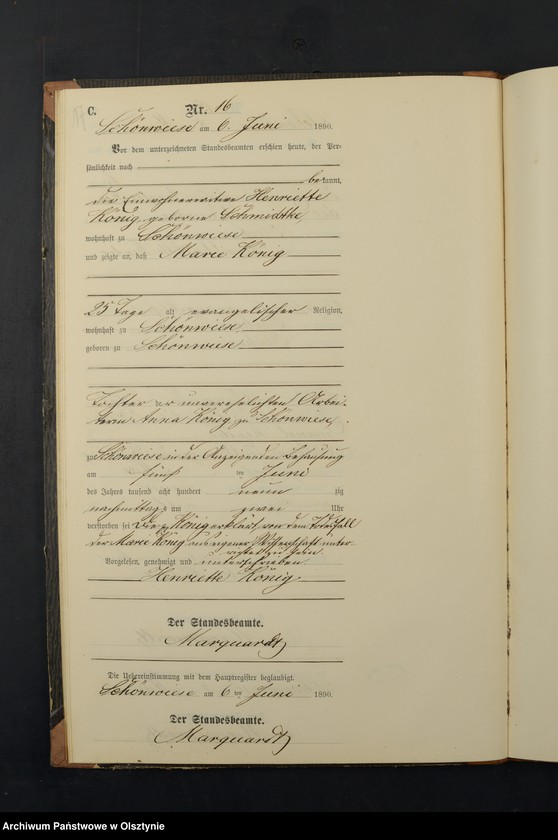 C.
Nr. 16
Schönwiese am 6. Juni 1890.
Vor dem unterzeichneten Standesbeamten erschien heute, der Per-
sönlichkeit nach
bekannt,
die Einwohnerwitwe Henriette
König geborne Schmidtke
wohnhaft zu Schönwiese
und zeigte an, daß Marie König
25 Tage alt evangelischer Religion,
wohnhaft zu Schönwiese
geboren zu Schönwiese
Tochter der unverehelichten Arbei-
terin Anna König, zu Schönwiese,
zu Schönwiese in der Anzeigenden Behausung
am fünf ten Juni
des Jahres tausend acht hundert neun zig
nachmittags um zwei Uhr
verstorben sei. Die König erklärt, von dem Todesfall
der Marie König aus eigener Wissenschaft unter-
richtet zu sein.
Vorgelesen, genehmigt und unterschrieben
Henriette König
Der Standesbeamte.
Marquardt
Die Uebereinstimmung mit dem Hauptregister beglaubigt.
Schönwiese am 6 ten Juni 1890.
Der Standesbeamte.
Marquardt
Archiwum Państwowe w Olsztynie